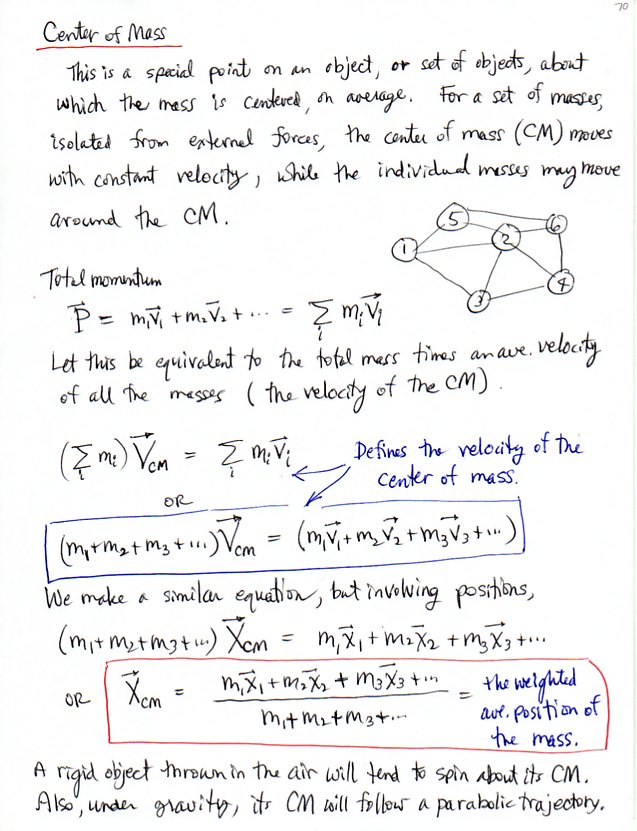 70
Center of Mass
This is a special point on an object, or set of objects, about
which the mass is centered, on average. For a set of masses,
isolated from external forces, the center of mass (CM) moves
with constant velocity, while the individual masses may move
around the CM.
5 6
1 2
3 4
Total momentum
P⃗ = m₁v⃗₁ + m₂v⃗₂ + ... = ∑ᵢ mᵢv⃗ᵢ
Let this be equivalent to the total mass times an ave. velocity
of all the masses (the velocity of the CM).
(∑ᵢ mᵢ) V⃗CM = ∑ᵢ mᵢv⃗ᵢ
Defines the velocity of the
center of mass.
OR
(m₁+m₂+m₃+...) V⃗cm = (m₁v⃗₁+m₂v⃗₂+m₃v⃗₃+...)
We make a similar equation, but involving positions,
(m₁+m₂+m₃+...) X⃗CM = m₁x⃗₁ + m₂x⃗₂ + m₃x⃗₃ + ...
OR X⃗CM = (m₁x⃗₁ + m₂x⃗₂ + m₃x⃗₃ + ...) / (m₁+m₂+m₃+...) = the weighted
ave. position of
the mass.
A rigid object thrown in the air will tend to spin about its CM.
Also, under gravity, its CM will follow a parabolic trajectory.